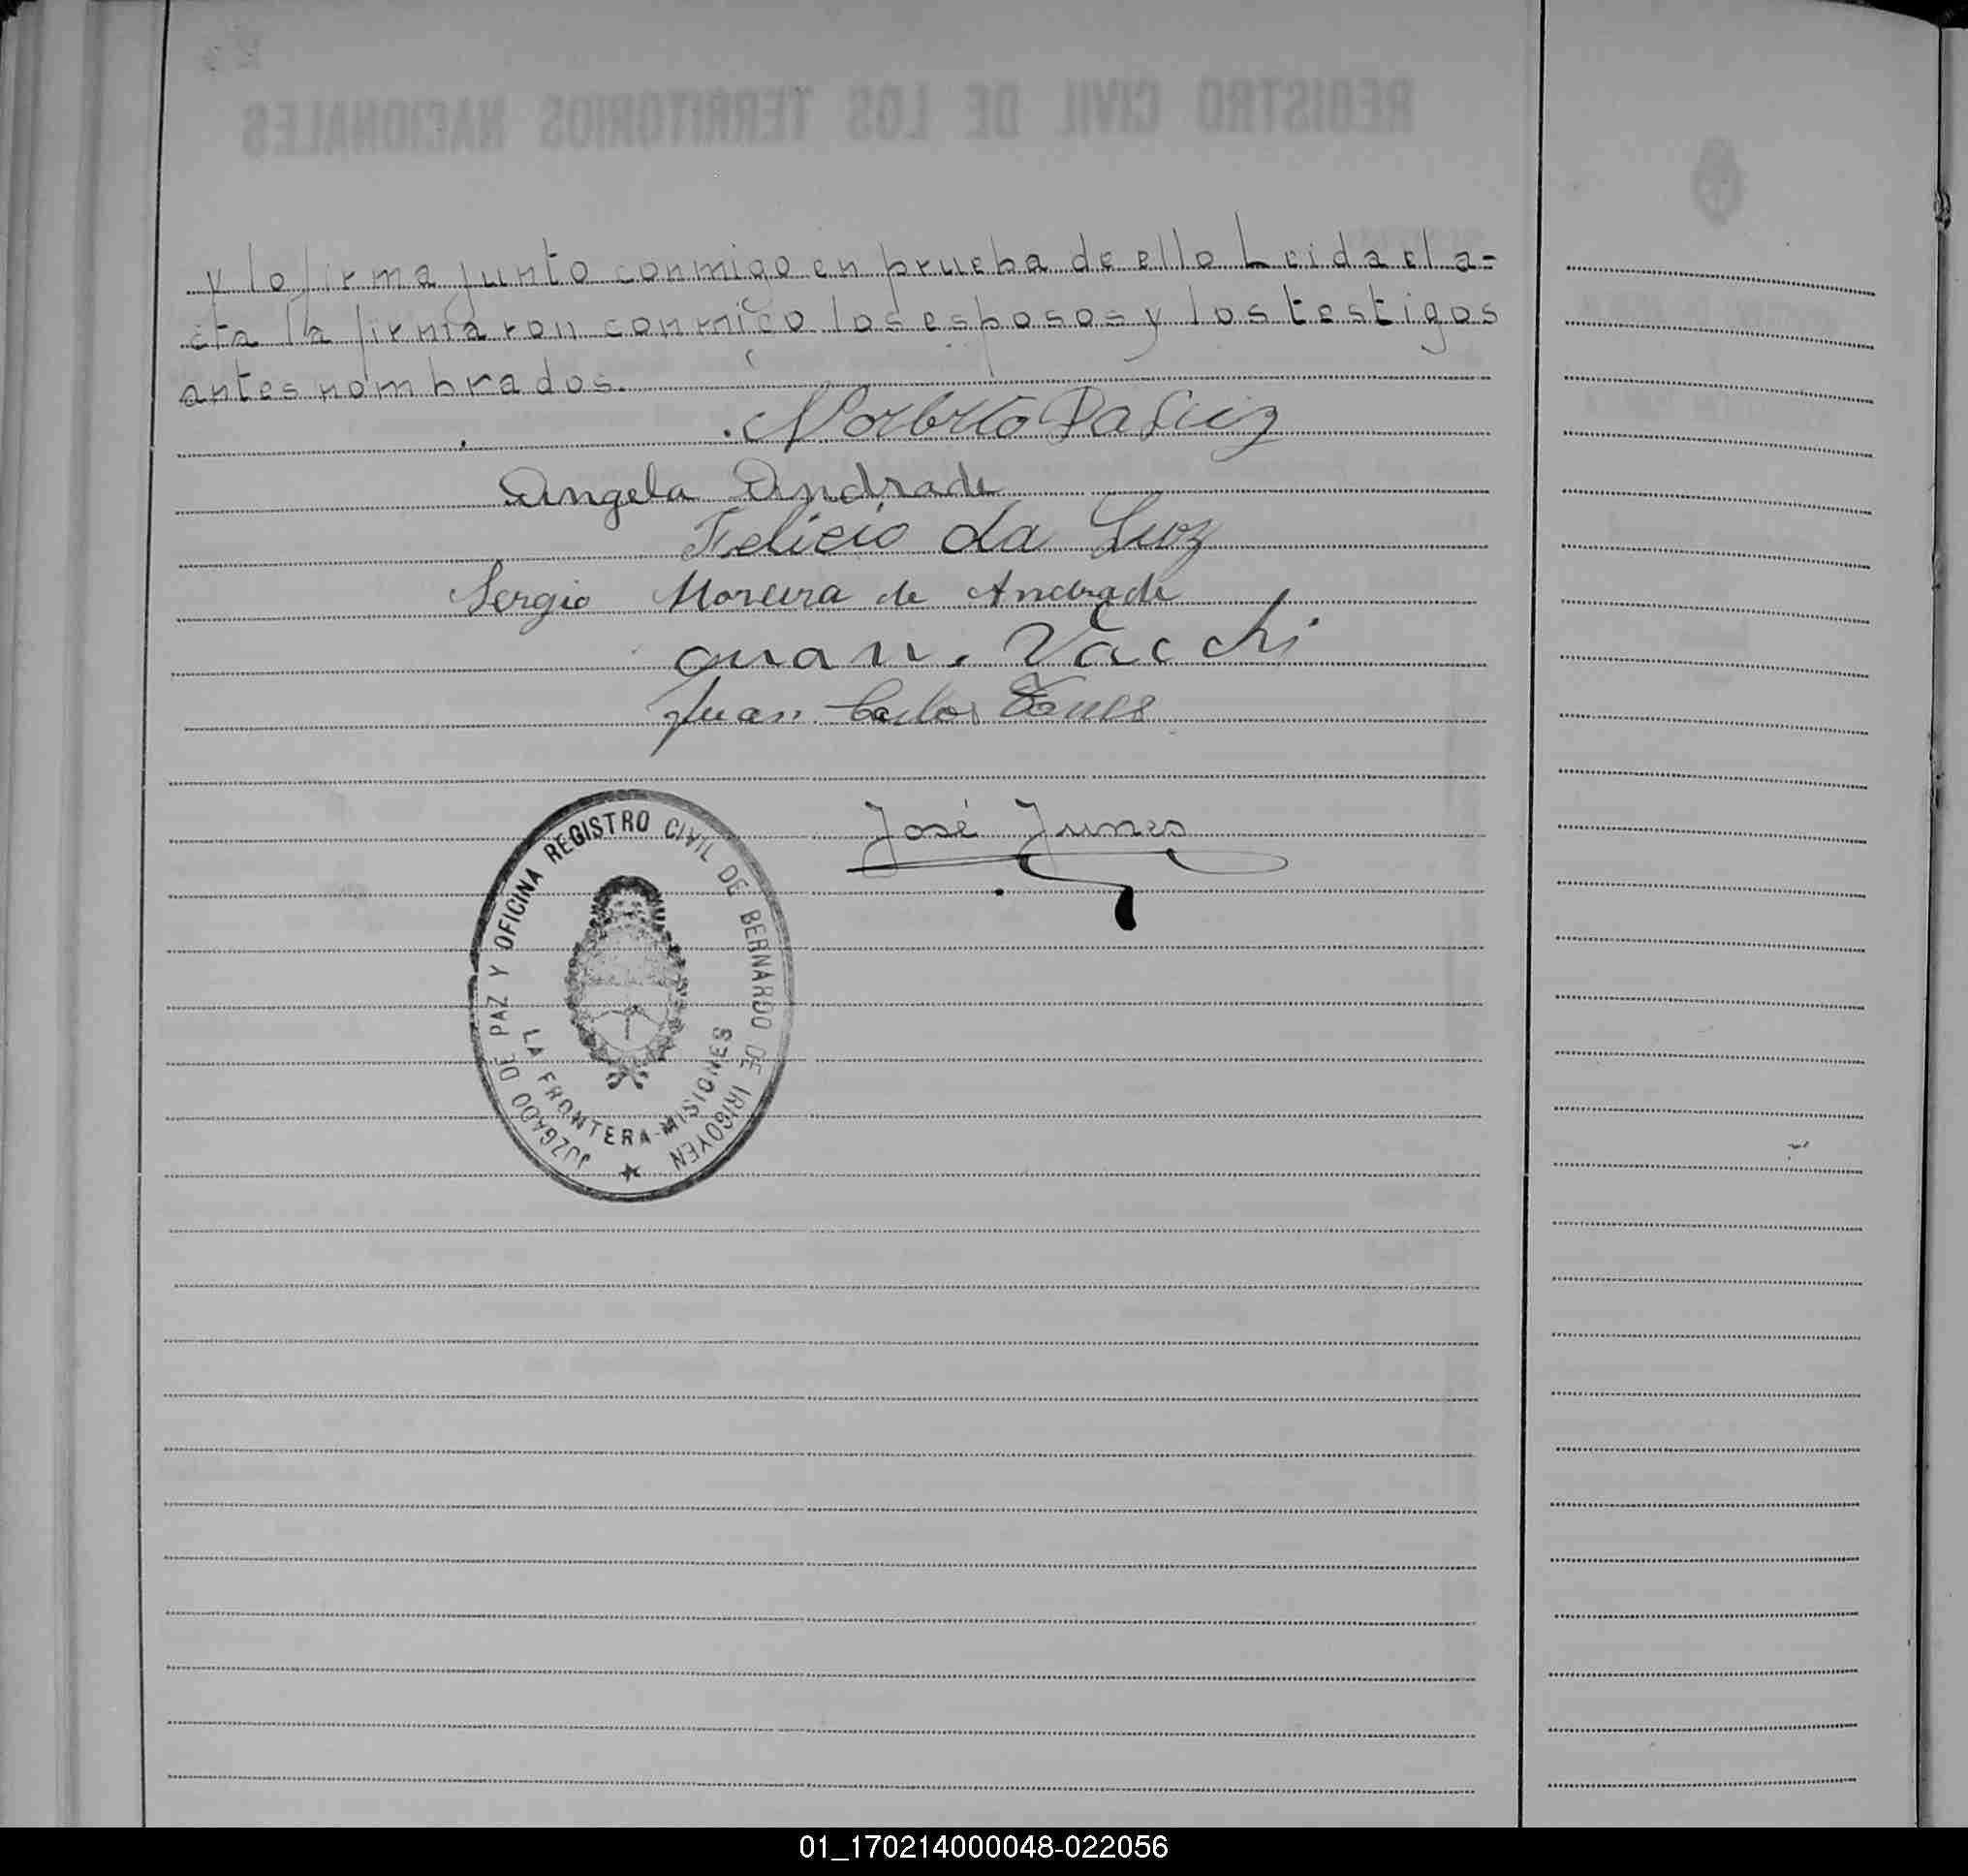 y lo firma junto conmigo en prueba de ello Leida el a-
cta la firmaron conmigo los esposos y los testigos
antes nombrados.
Norberto Da Luiz
Angela Andrade
Felicio da Luz
Sergio Moreira de Andrade
Juan. Vacchi
Juan Carlos
José Junes
JUZGADO DE PAZ Y OFICINA REGISTRO CIVIL DE BERNARDO DE IRIGOYEN
LA FRONTERA-MISIONES
01_170214000048-022056